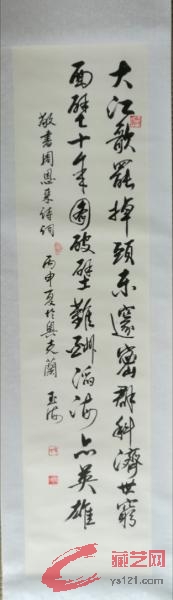 大江歌罢掉頭东邃密群科濟世窮
面壁十年圖破壁難酬滔海亦英雄
敬書周恩来诗词
丙申夏於奥克蘭
玉海
藏艺网
ys121.com